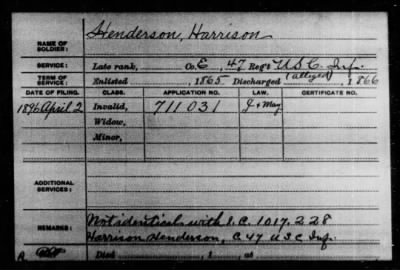 Henderson, Harrison
NAME OF SOLDIER:
SERVICE: Late rank, Co. E, 47 Reg't U.S.C. Inf.
TERM OF SERVICE: Enlisted , 1865 Discharged (alleged) , 1866
DATE OF FILING. CLASS. APPLICATION NO. LAW. CERTIFICATE NO.
1896 April 2 Invalid, 711031
Widow,
Minor,
ADDITIONAL SERVICES:
REMARKS: Not identical with I.C. 1017,228
Harrison Henderson, C 47 U S C Inf.
Died , 1 , at